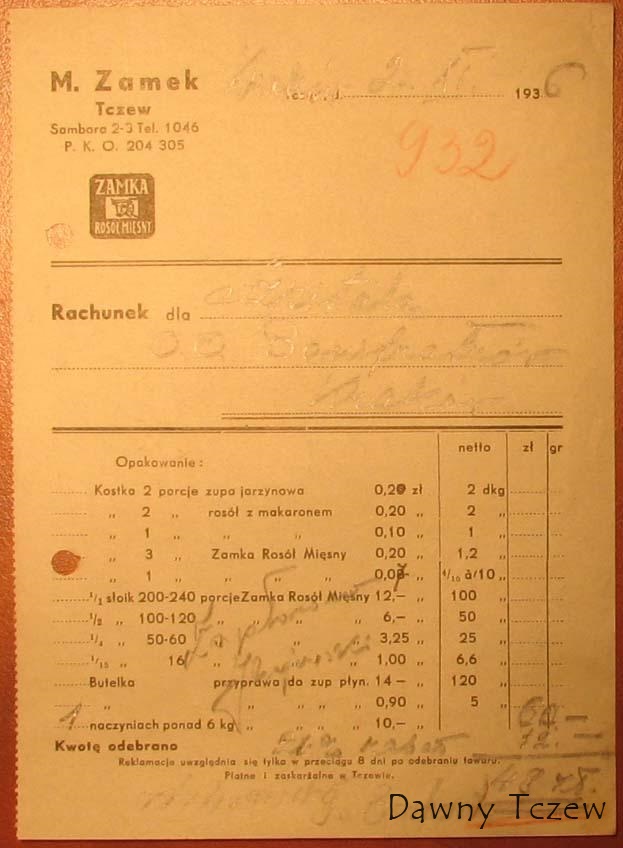 M. Zamek
Tczew
Sambora 2-3 Tel. 1046
P. K. O. 204 305
ZAMKA
ROSÓŁ MIĘSNY
Kraków XI. 1936
932
Rachunek dla
O. O. Bonifratrów
Kraków
netto zł gr
Opakowanie :
Kostka 2 porcje zupa jarzynowa 0,20 zł 2 dkg
„ 2 „ rosół z makaronem 0,20 „ 2 „
„ 1 „ „ „ 0,10 „ 1 „
„ 3 „ Zamka Rosół Mięsny 0,20 „ 1,2 „
„ 1 „ „ „ „ „ 4/10 à/10 „
1/1 słoik 200-240 porcje Zamka Rosół Mięsny 12,– „ 100 „
1/2 „ 100-120 „ „ „ „ 6,– „ 50 „
1/4 „ 50-60 „ „ „ „ 3,25 „ 25 „
1/15 „ 16 „ „ „ „ 1,00 „ 6,6 „
Butelka przyprawa do zup płyn. 14 – „ 120 „
„ „ „ „ „ 0,90 „ 5 „
1 naczyniach ponad 6 kg „ „ „ 10,– „ 60 –
Kwotę odebrano 20% rabat 12.–
Reklamacja uwzględnia się tylko w przeciągu 8 dni po odebraniu towaru.
Płatne i zaskarżalne w Tczewie.
48 zł.
Dawny Tczew